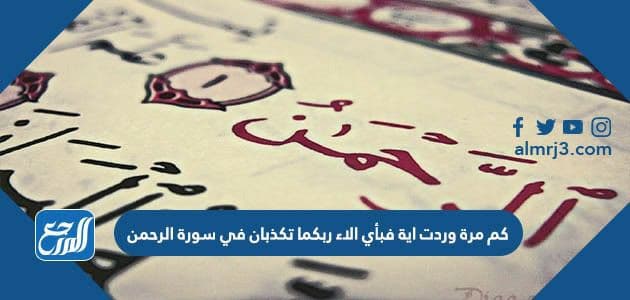 الرحمن
١
almrj3.com
كم مرة وردت اية فبأي الاء ربكما تكذبان في سورة الرحمن
المرجع